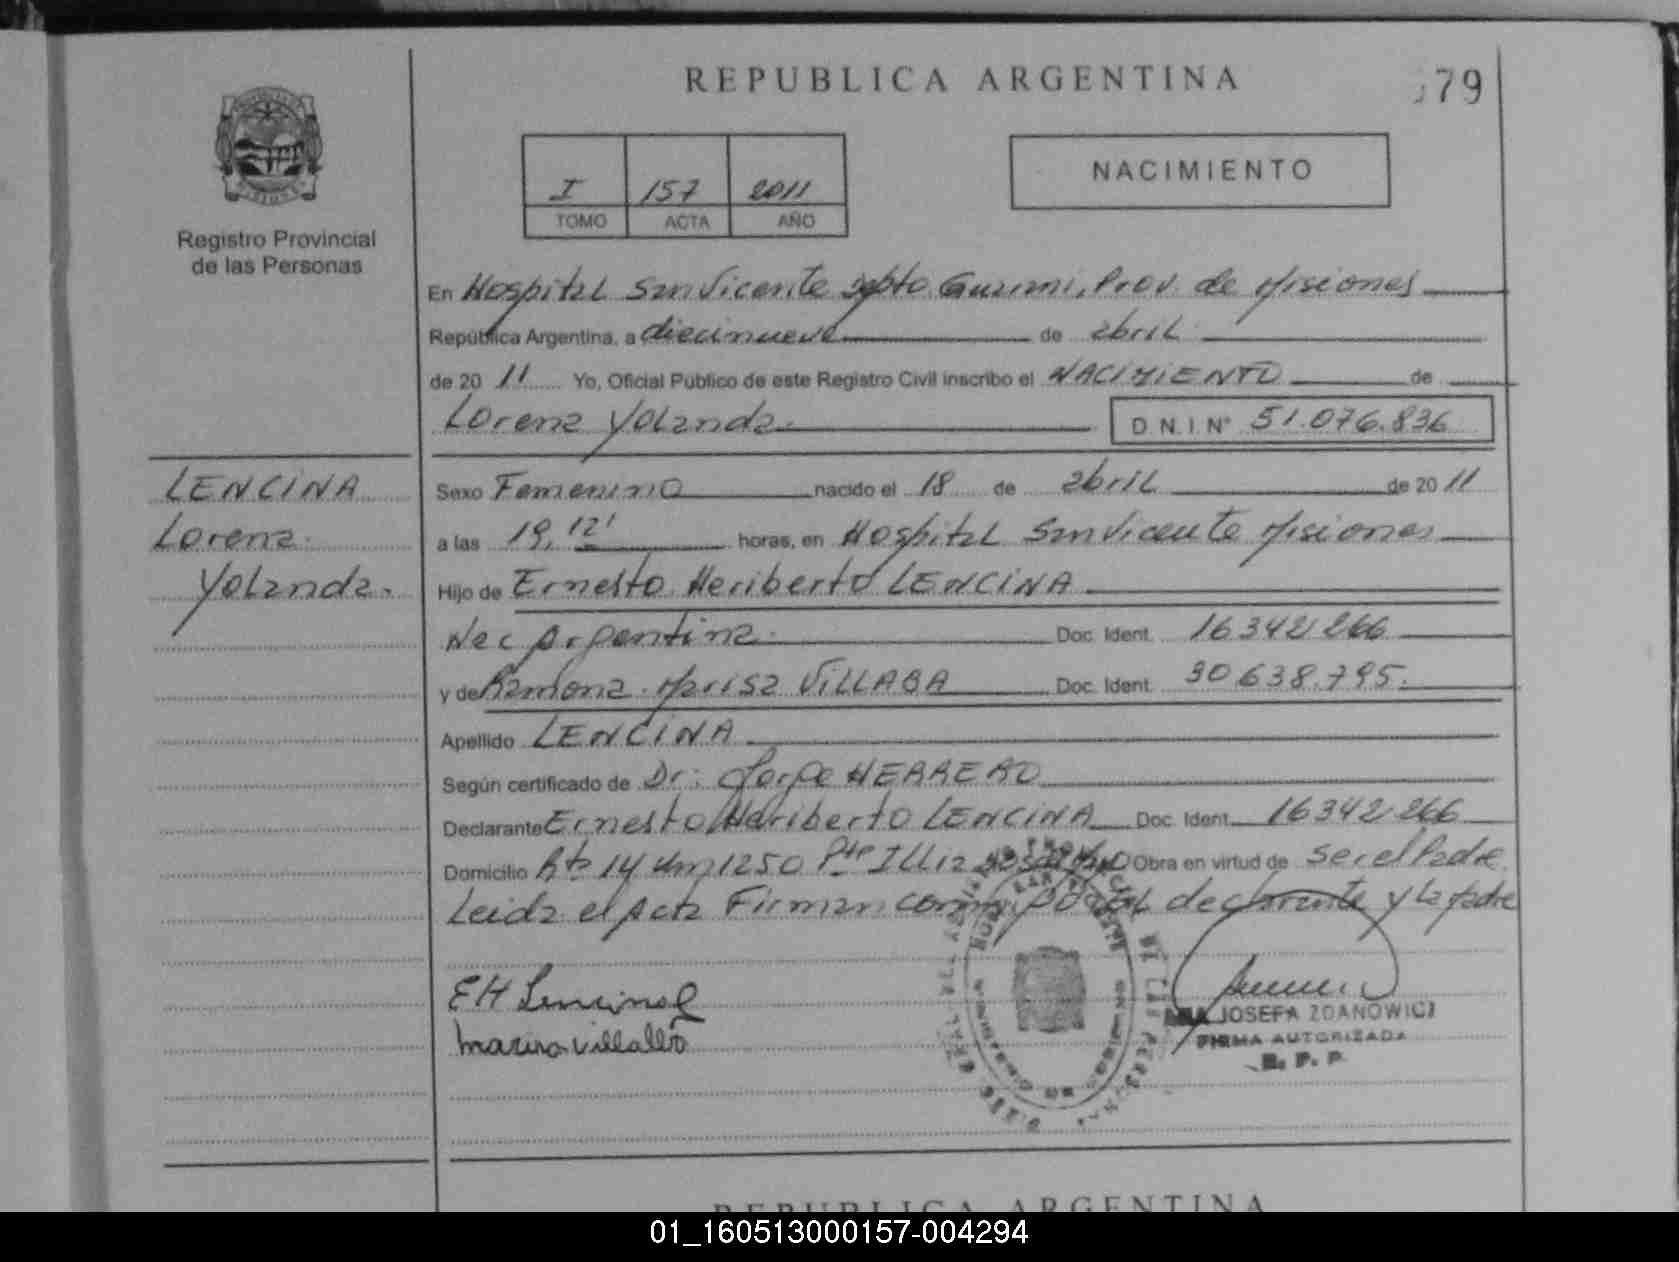 REPUBLICA ARGENTINA
79
Registro Provincial
de las Personas
I 157 2011
TOMO ACTA AÑO
NACIMIENTO
En Hospital San Vicente Dpto Guarani, Prov. de Misiones
República Argentina, a diecinueve de abril
de 20 11 Yo, Oficial Público de este Registro Civil inscribo el NACIMIENTO de
Lorena Yolanda. D.N.I. N° 51.076.836
LENCINA
Lorena
Yolanda.
Sexo Femenino nacido el 18 de abril de 20 11
a las 19,12' horas, en Hospital San Vicente Misiones
Hijo de Ernesto Heriberto LENCINA
Nac Argentina. Doc. Ident. 16342266
y de Ramona Marisa VILLABA Doc. Ident. 30638.795.
Apellido LENCINA
Según certificado de Dr: Jorge HERRERO
Declarante Ernesto Heriberto LENCINA Doc. Ident. 16342266
Domicilio Rta 14 Km 1250 Pte ILLia Obra en virtud de Ser el Padre
Leida el Acta Firman declarante y la Madre
EH Lencina
Marisa Villalba
JOSEFA ZDANOWICZ
FIRMA AUTORIZADA
R. P. P.
REPUBLICA ARGENTINA
01_160513000157-004294